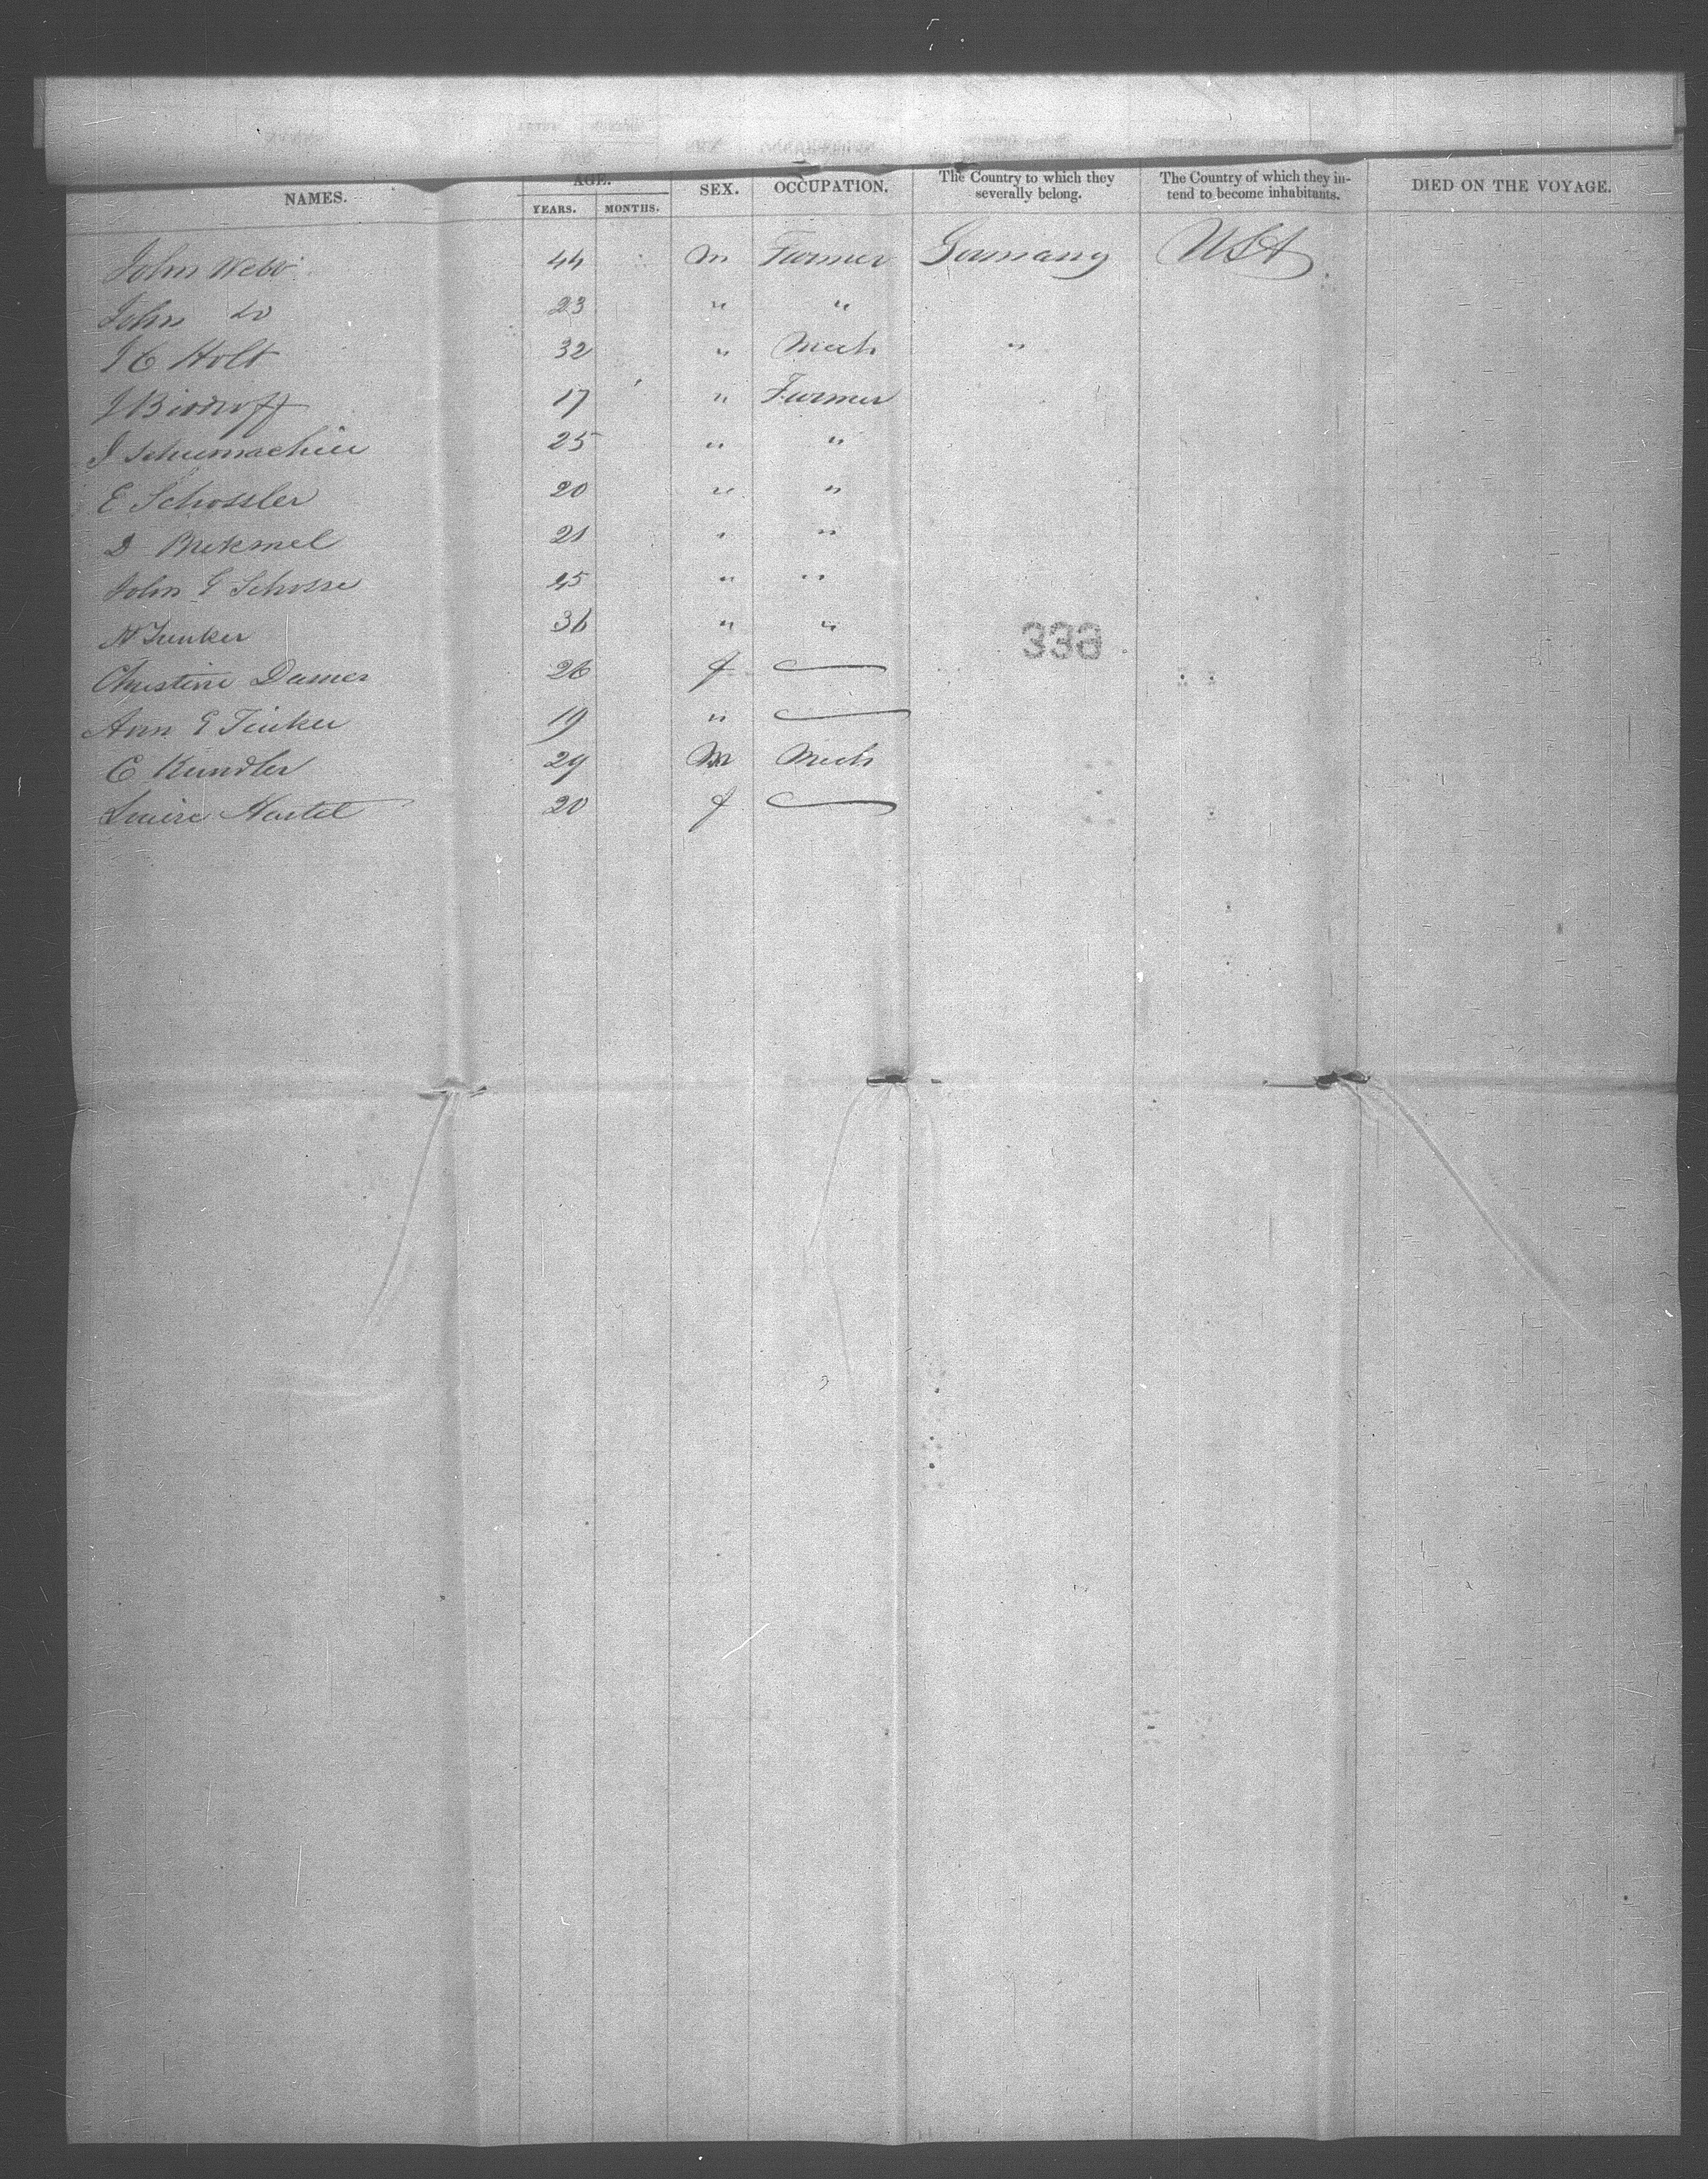 NAMES. AGE. SEX. OCCUPATION. The Country to which they severally belong. The Country of which they intend to become inhabitants. DIED ON THE VOYAGE.
YEARS. MONTHS.
John Webb 44 m Farmer Germany USA
John do 23 " "
J C Holt 32 " Mech "
J 17 " Farmer
J Schumacher 25 " "
E Schossler 20 " "
D 21 " "
John G 45 " "
36 " "
Christine Dames 26 f
Ann E Tinker 19 "
C Kundler 29 M Mech
Louise Hartel 20 f
338